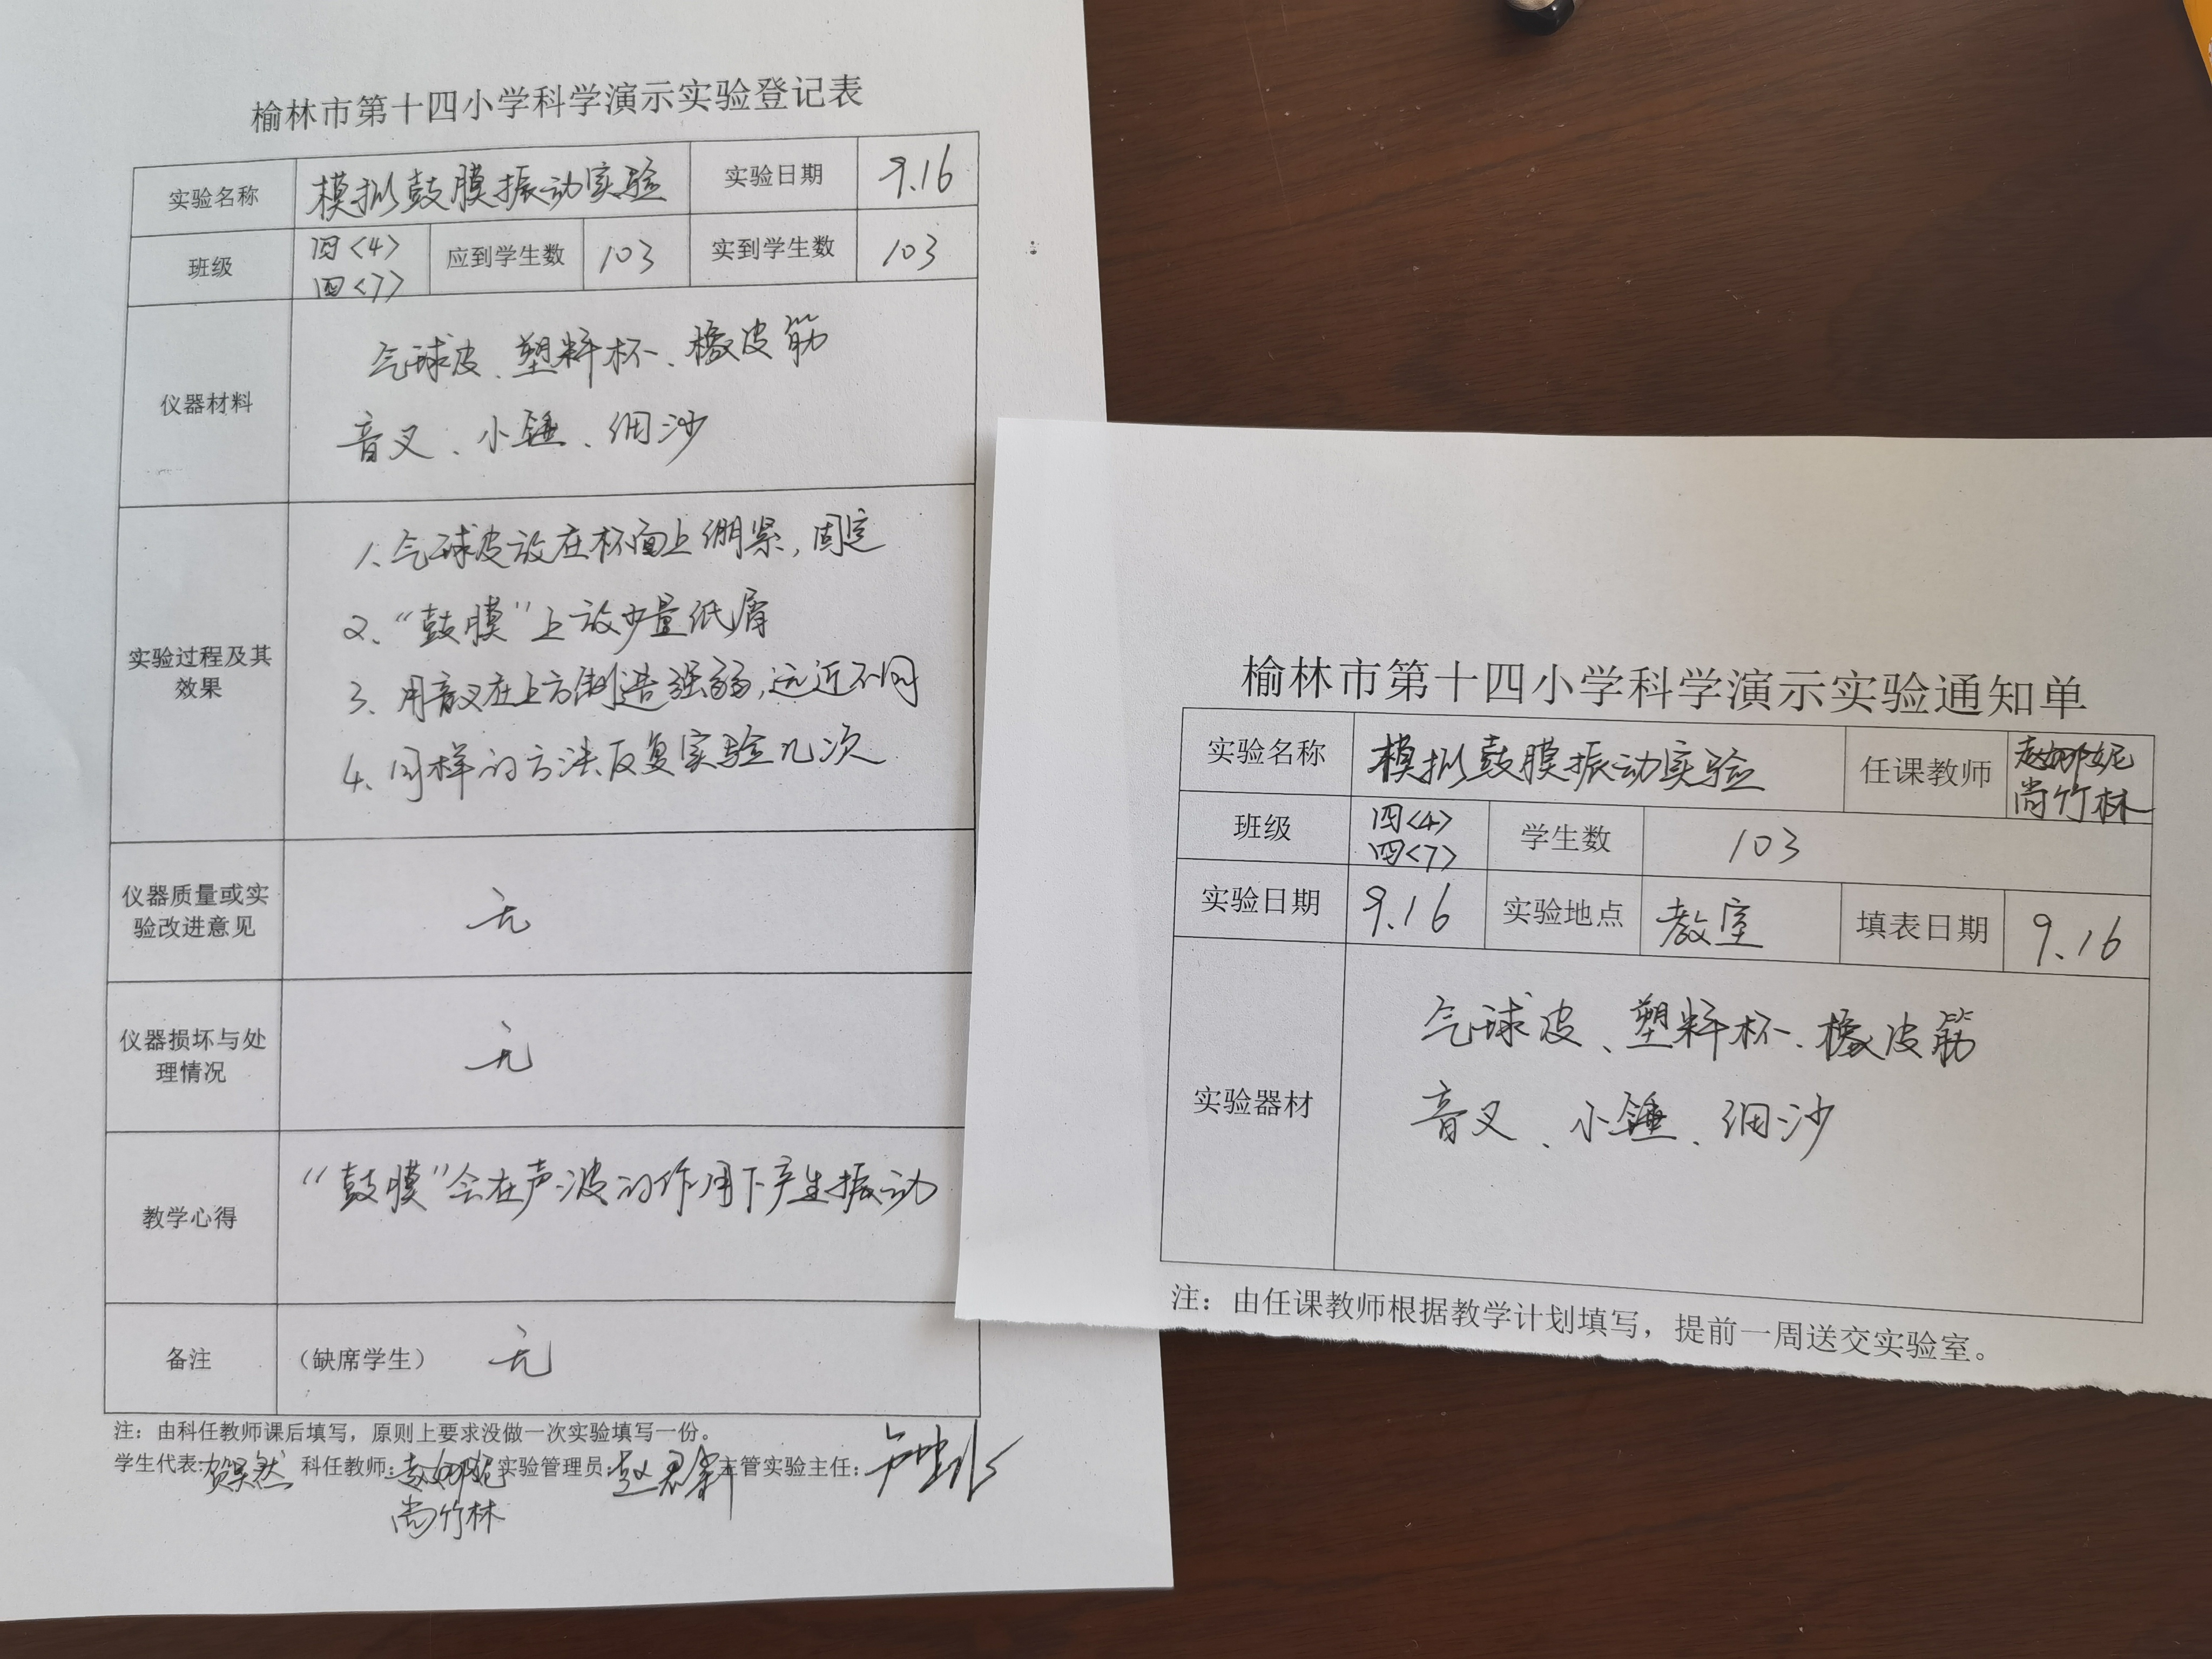 榆林市第十四小学科学演示实验登记表
实验名称 模拟鼓膜振动实验 实验日期 9.16
班级 四<4> 四<7> 应到学生数 103 实到学生数 103
仪器材料
气球皮、塑料杯、橡皮筋
音叉、小锤、细沙
实验过程及其
效果
1、气球皮放在杯面上绷紧,固定
2、“鼓膜”上放少量纸屑
3、用音叉在上方制造强弱,远近不同
4、同样的方法反复实验几次
仪器质量或实
验改进意见
无
仪器损坏与处
理情况
无
教学心得
“鼓膜”会在声波的作用下产生振动
备注 (缺席学生) 无
注:由科任教师课后填写,原则上要求没做一次实验填写一份。
学生代表: 科任教师:赵娜妮 实验管理员: 主管实验主任:
尚竹林
榆林市第十四小学科学演示实验通知单
实验名称 模拟鼓膜振动实验 任课教师 赵娜妮
尚竹林
班级 四<4> 四<7> 学生数 103
实验日期 9.16 实验地点 教室 填表日期 9.16
实验器材
气球皮、塑料杯、橡皮筋
音叉、小锤、细沙
注:由任课教师根据教学计划填写,提前一周送交实验室。